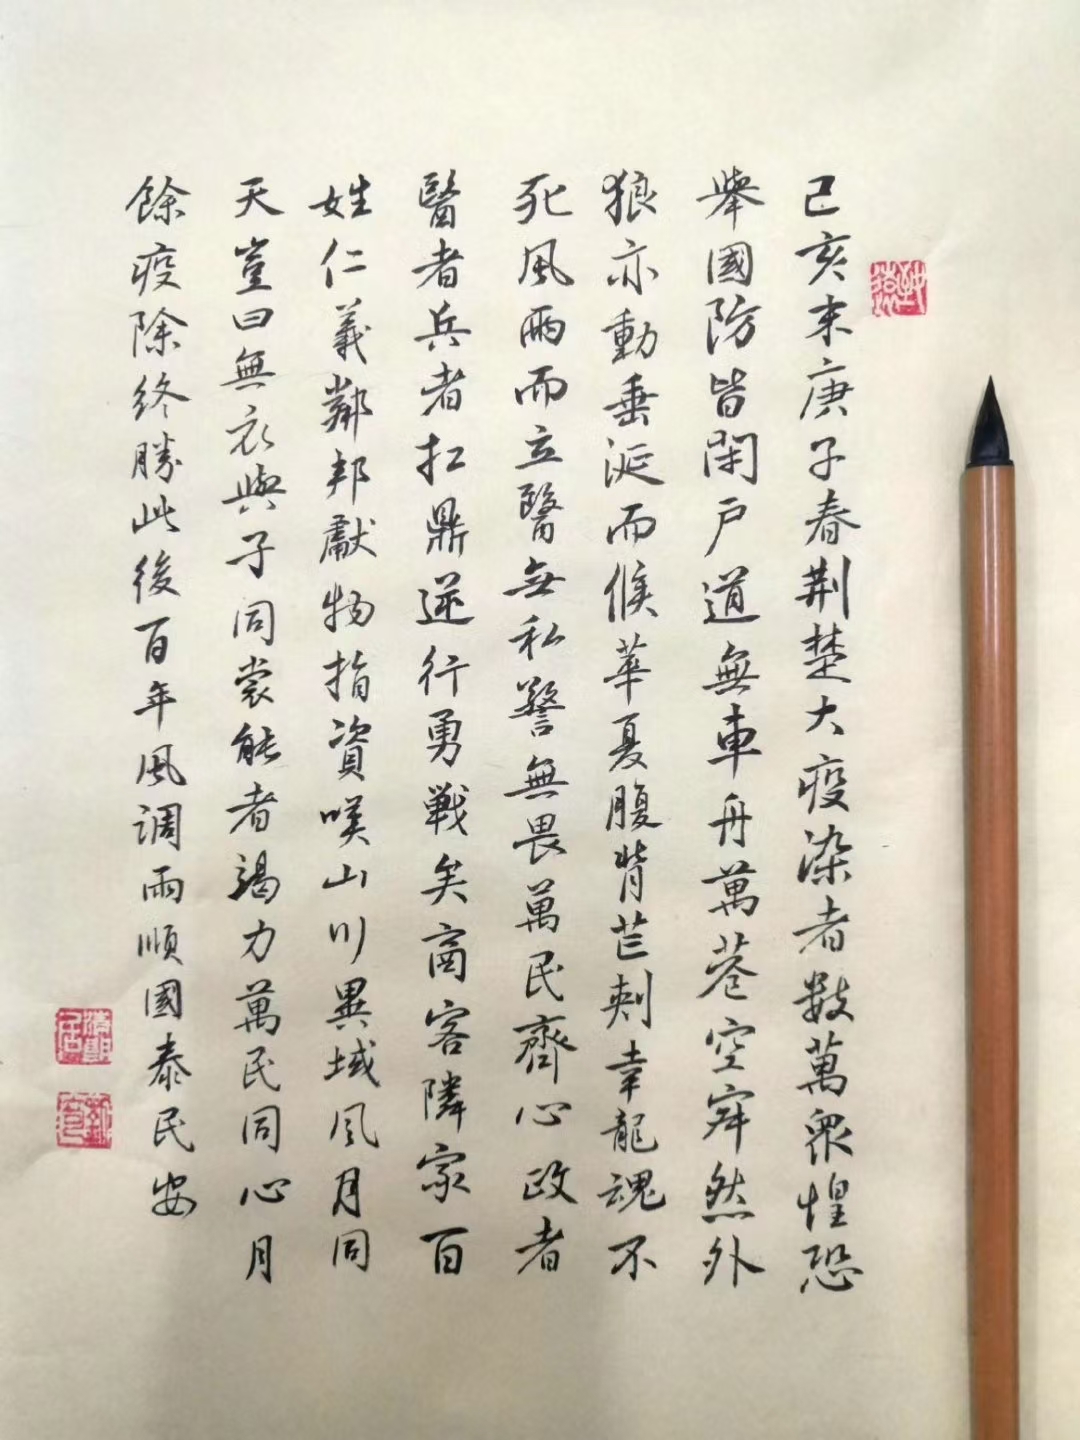 己亥末庚子春荆楚大疫染者數萬眾惶恐
舉國防皆閉户道無車舟萬巷空寂然外
狼亦動垂涎而候華夏腹背芒刺幸龍魂不
死風雨而立醫無私警無畏萬民齊心政者
醫者兵者扛鼎逆行勇戰矣商客隣家百
姓仁義鄰邦獻物指資嘆山川異域風月同
天豈曰無衣與子同裳能者竭力萬民同心月
餘疫除終勝此後百年風调雨順國泰民安